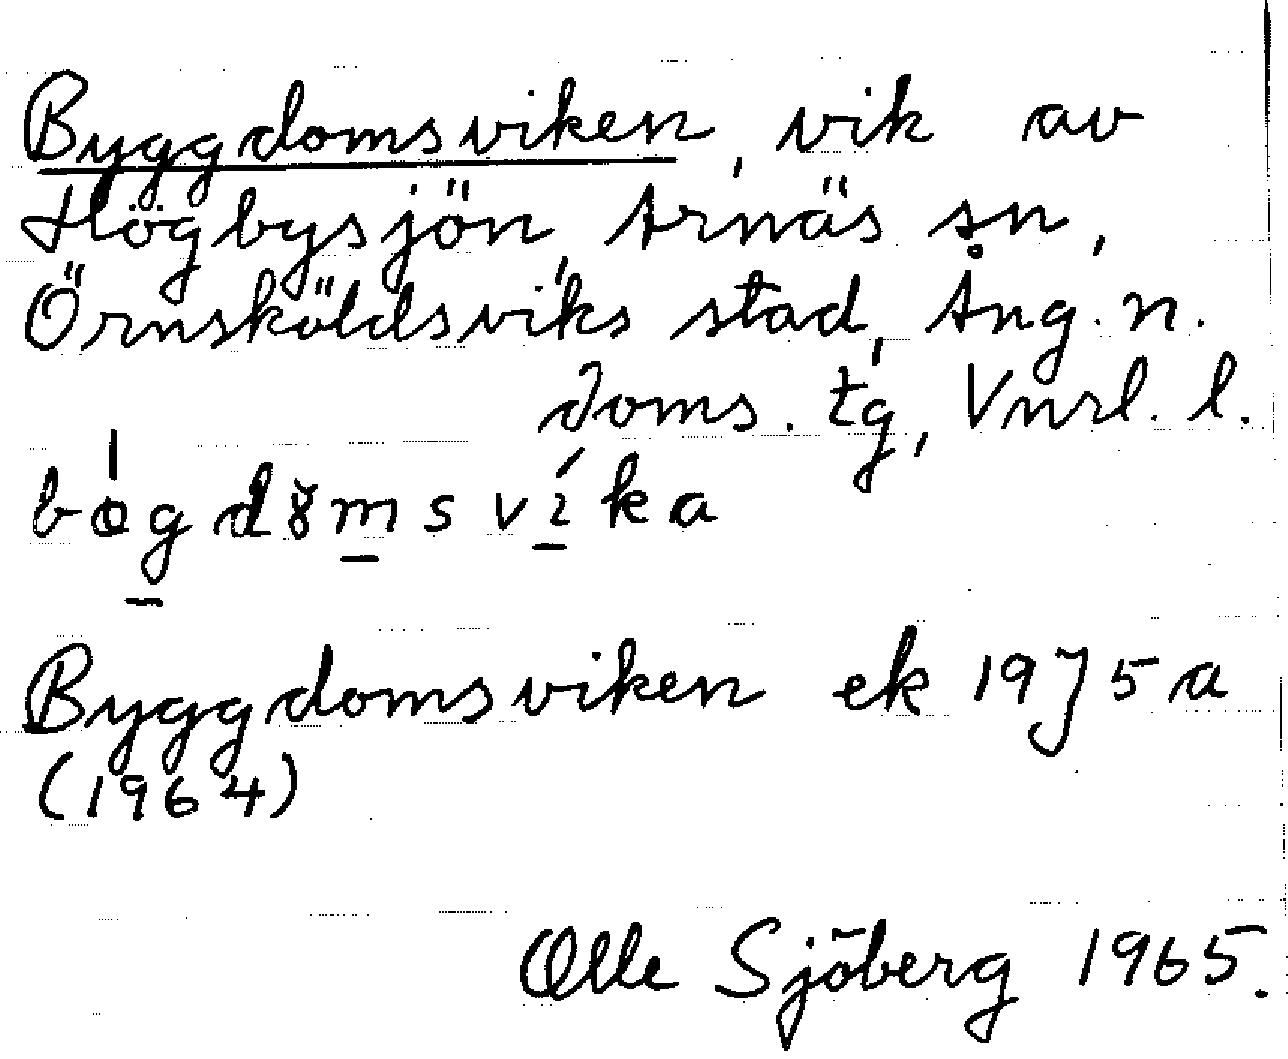 Byggdomsviken, vik av
Högbysjön, Arnäs sn,
Örnsköldsviks stad, Ång. n.
doms. tg, Vnrl. l.
Byggdomsviken ek 19J5a
(1964)
Olle Sjöberg 1965.